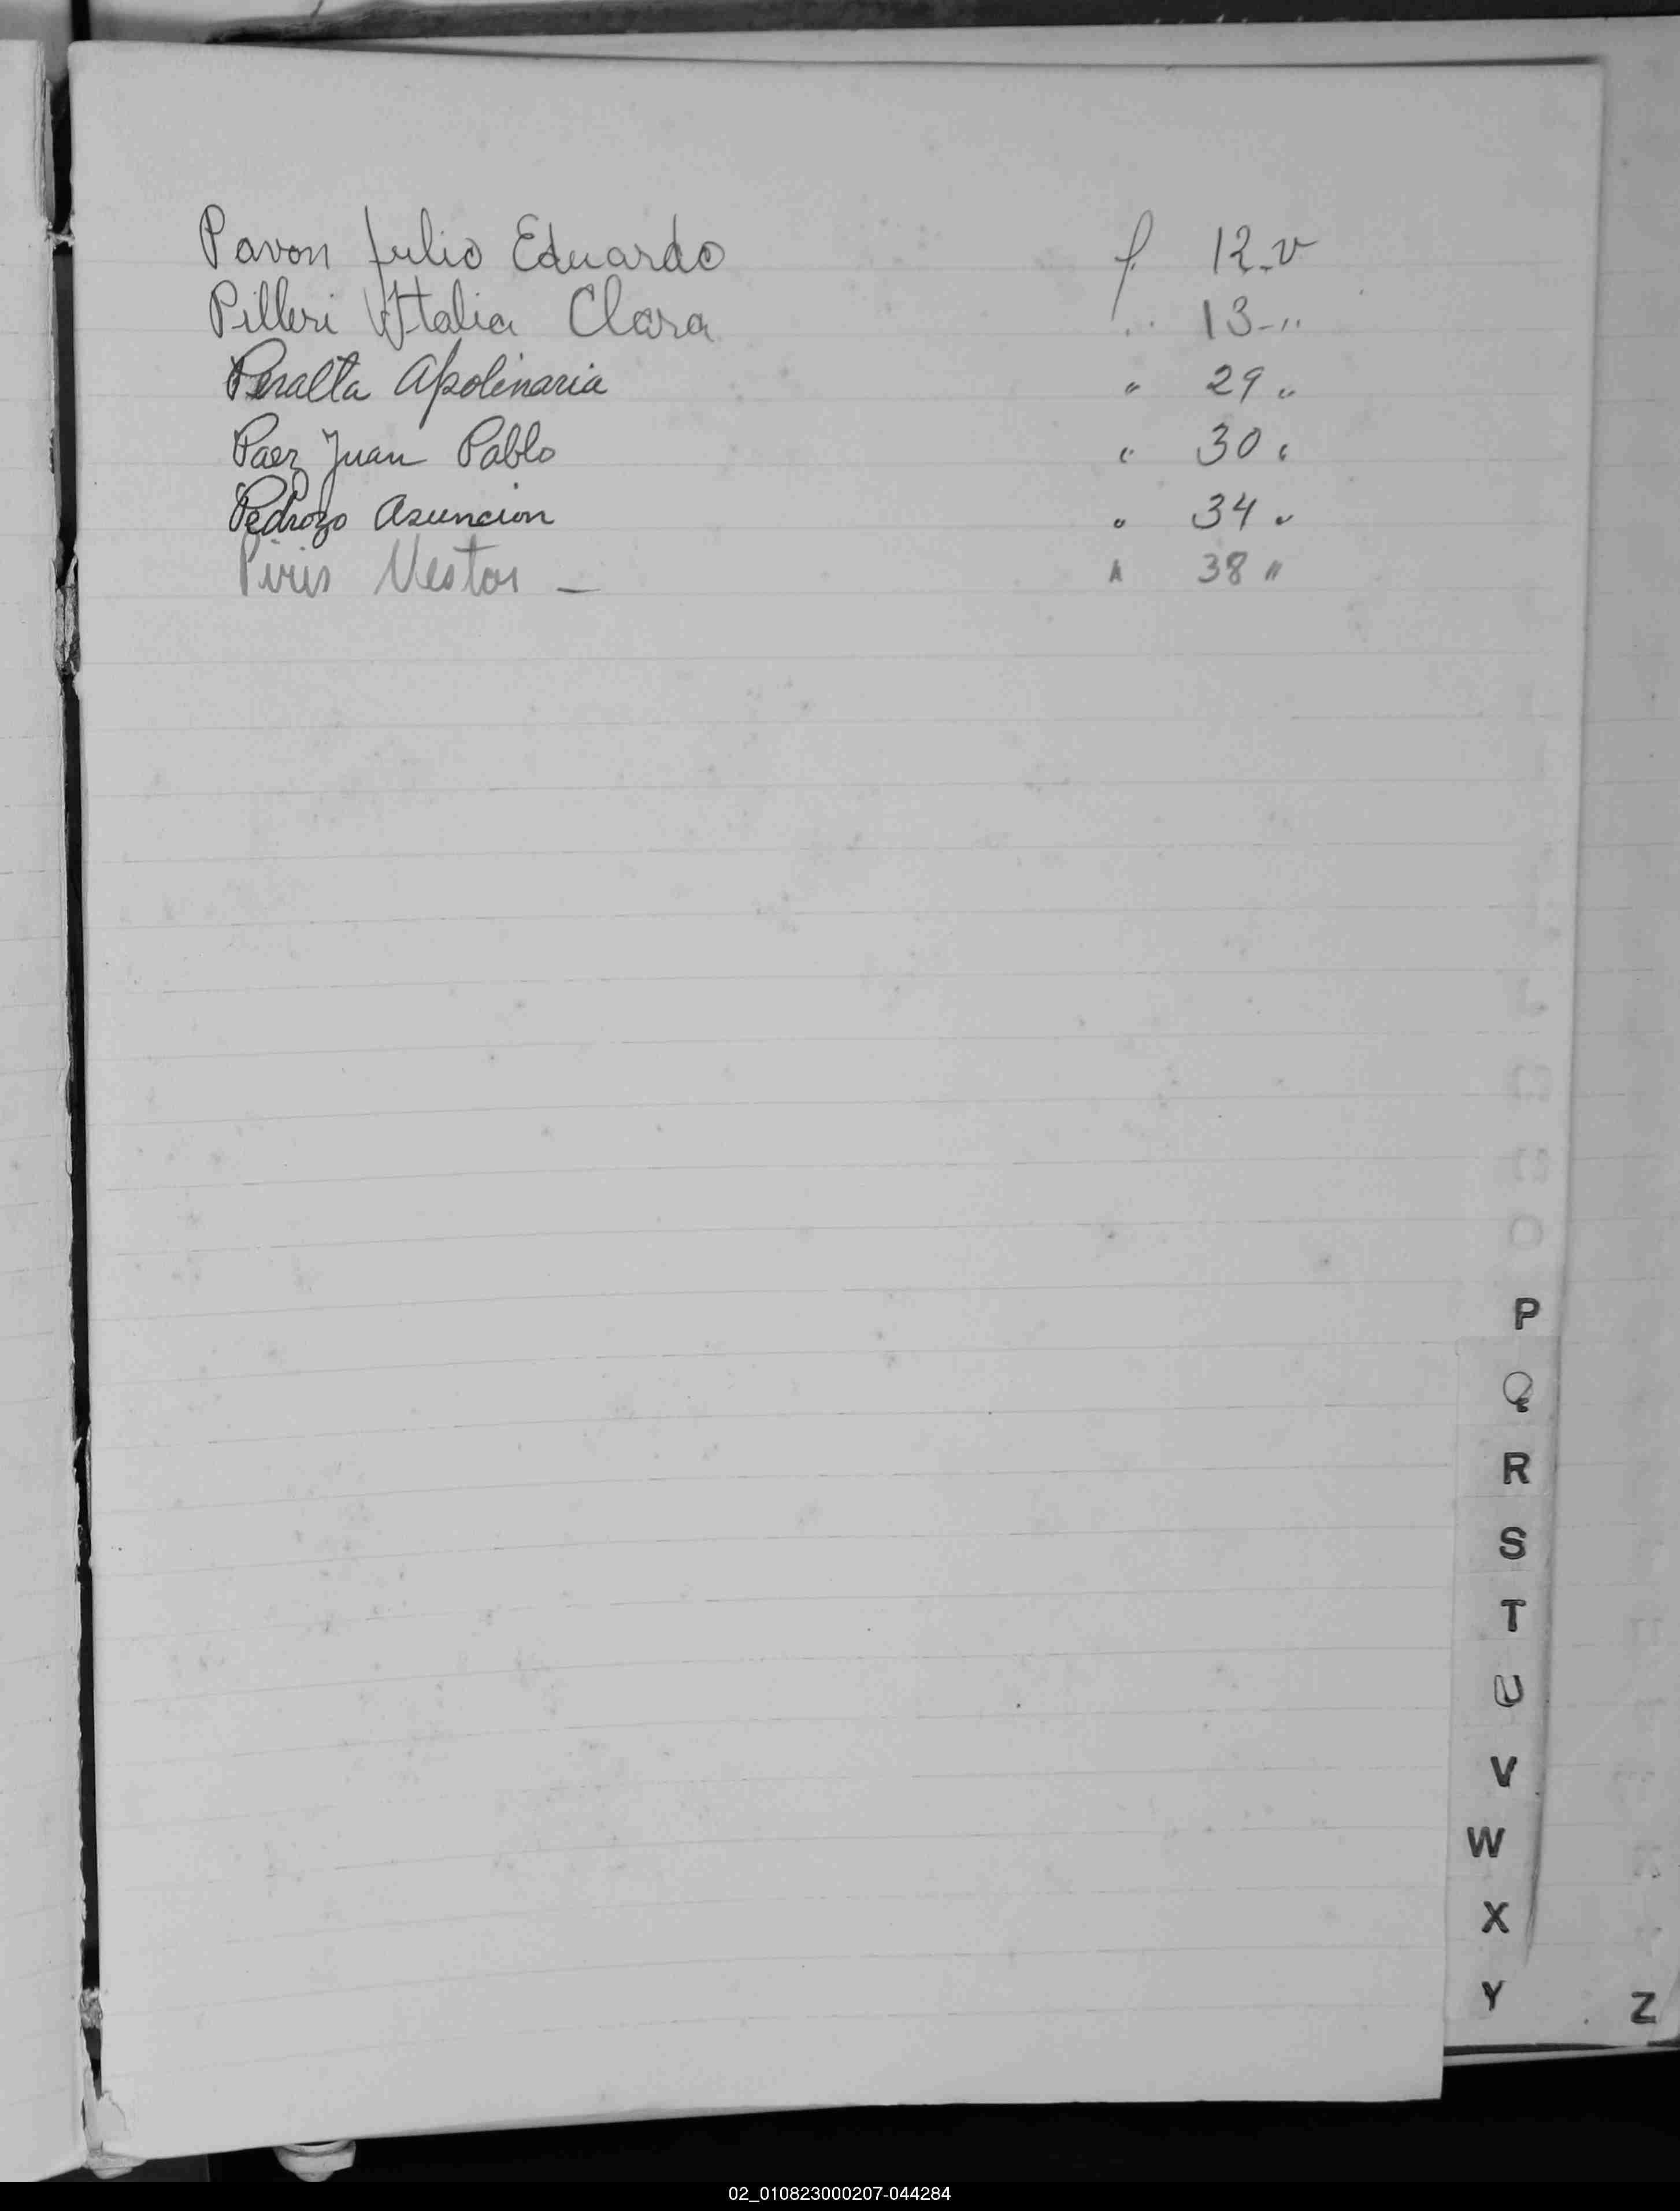 Pavon Julio Eduardo f. 12-v
Pilleri Italia Clara " 13-"
Peralta Apolinaria " 29 "
Paez Juan Pablo " 30 "
Pedrozo Asuncion " 34 "
Piris Nestor — " 38 "
P
Q
R
S
T
U
V
W
X
Y
Z
02_010823000207-044284